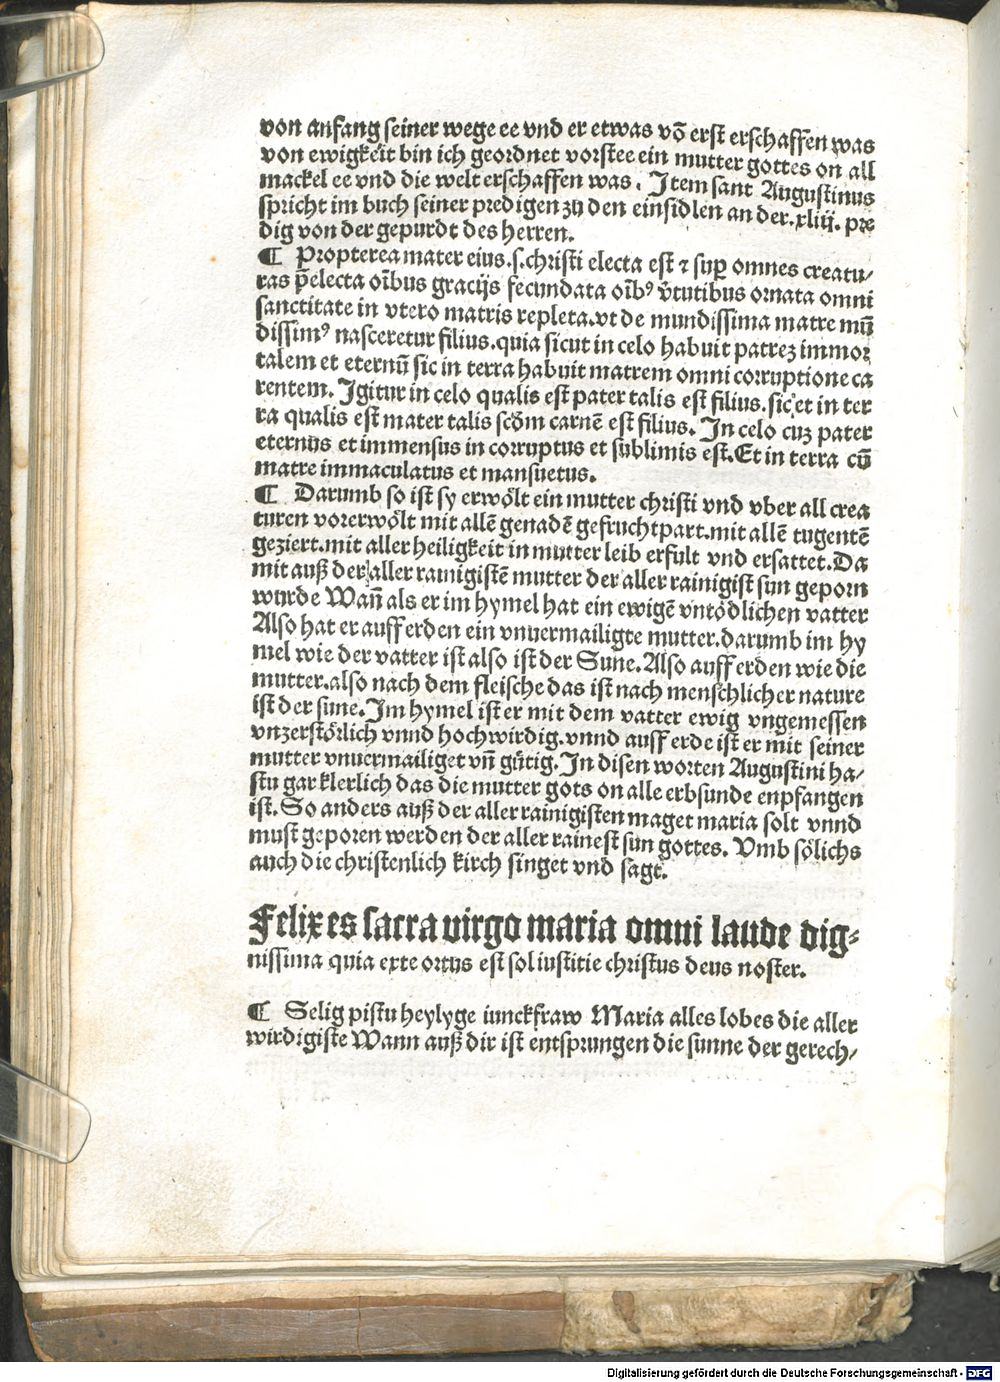 von anfang seiner wege ee vnd er etwas vō erst erschaffen was
von ewigkeit bin ich geordnet vorstee ein mutter gottes on all
mackel ee vnd die welt erschaffen was. Item sant Augustinus
spricht im buch seiner predigen zu den einsidlen an der .xliij. pre
dig von der gepurdt des herren.
¶ Propterea mater eius .s. christi electa est ⁊ sup̲ omnes creatu⸗
ras p̄electa oi̅bus gracijs fecundata oi̅bꝰ v̾tutibus ornata omni
sanctitate in vtero matris repleta. vt de mundissima matre mū
dissimꝰ nasceretur filius. quia sicut in celo habuit patreꝫ immor
talem et eternū sic in terra habuit matrem omni corruptione ca
rentem. Igitur in celo qualis est pater talis est filius. sic et in ter
ra qualis est mater talis scd̄m carnē est filius. In celo cuꝫ pater
eternus et immensus in corruptus et sublimis est. Et in terra cū
matre immaculatus et mansuetus.
¶ Darumb so ist sy erwoͤlt ein mutter christi vnd vber all crea
turen vorerwoͤlt mit allē genadē gefruchtpart. mit allē tugentē
geziert. mit aller heiligkeit in mutter leib erfult vnd ersattet. Da
mit auß der aller rainigistē mutter der aller rainigist sun geporn
wurde Wan̄ als er im hymel hat ein ewigē vntoͤdlichen vatter
Also hat er auff erden ein vnuermailigte mutter. darumb im hy
mel wie der vatter ist also ist der Sune. Also auff erden wie die
mutter. also nach dem fleische das ist nach menschlicher nature
ist der sune. Im hymel ist er mit dem vatter ewig vngemessen
vnzerstoͤrlich vnnd hochwirdig. vnnd auff erde ist er mit seiner
mutter vnuermailiget vn̄ guͤtig. In disen worten Augustini ha⸗
stu gar klerlich das die mutter gots on alle erbsunde enpfangen
ist. So anders auß der aller rainigisten maget maria solt vnnd
must geporen werden der aller rainest sun gottes. Vmb soͤlichs
auch die christenlich kirch singet vnd sagt.
Felix es sacra virgo maria omni laude dig⸗
nissima quia exte ortus est sol iustitie christus deus noster.
¶ Selig pistu heylyge iunckfraw Maria alles lobes die aller
wirdigiste Wann auß dir ist entsprungen die sunne der gerech⸗
Digitalisierung gefördert durch die Deutsche Forschungsgemeinschaft - DFG